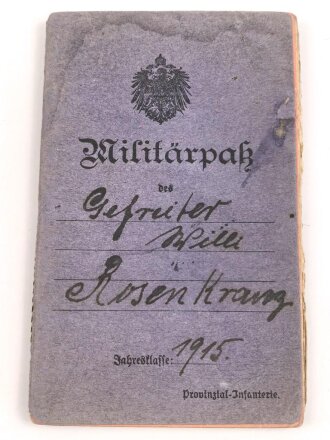 Militärpaß
des
Gefreiter
Willi
Rosenkranz
Jahresklasse: 1915.
Provinzial-Infanterie.